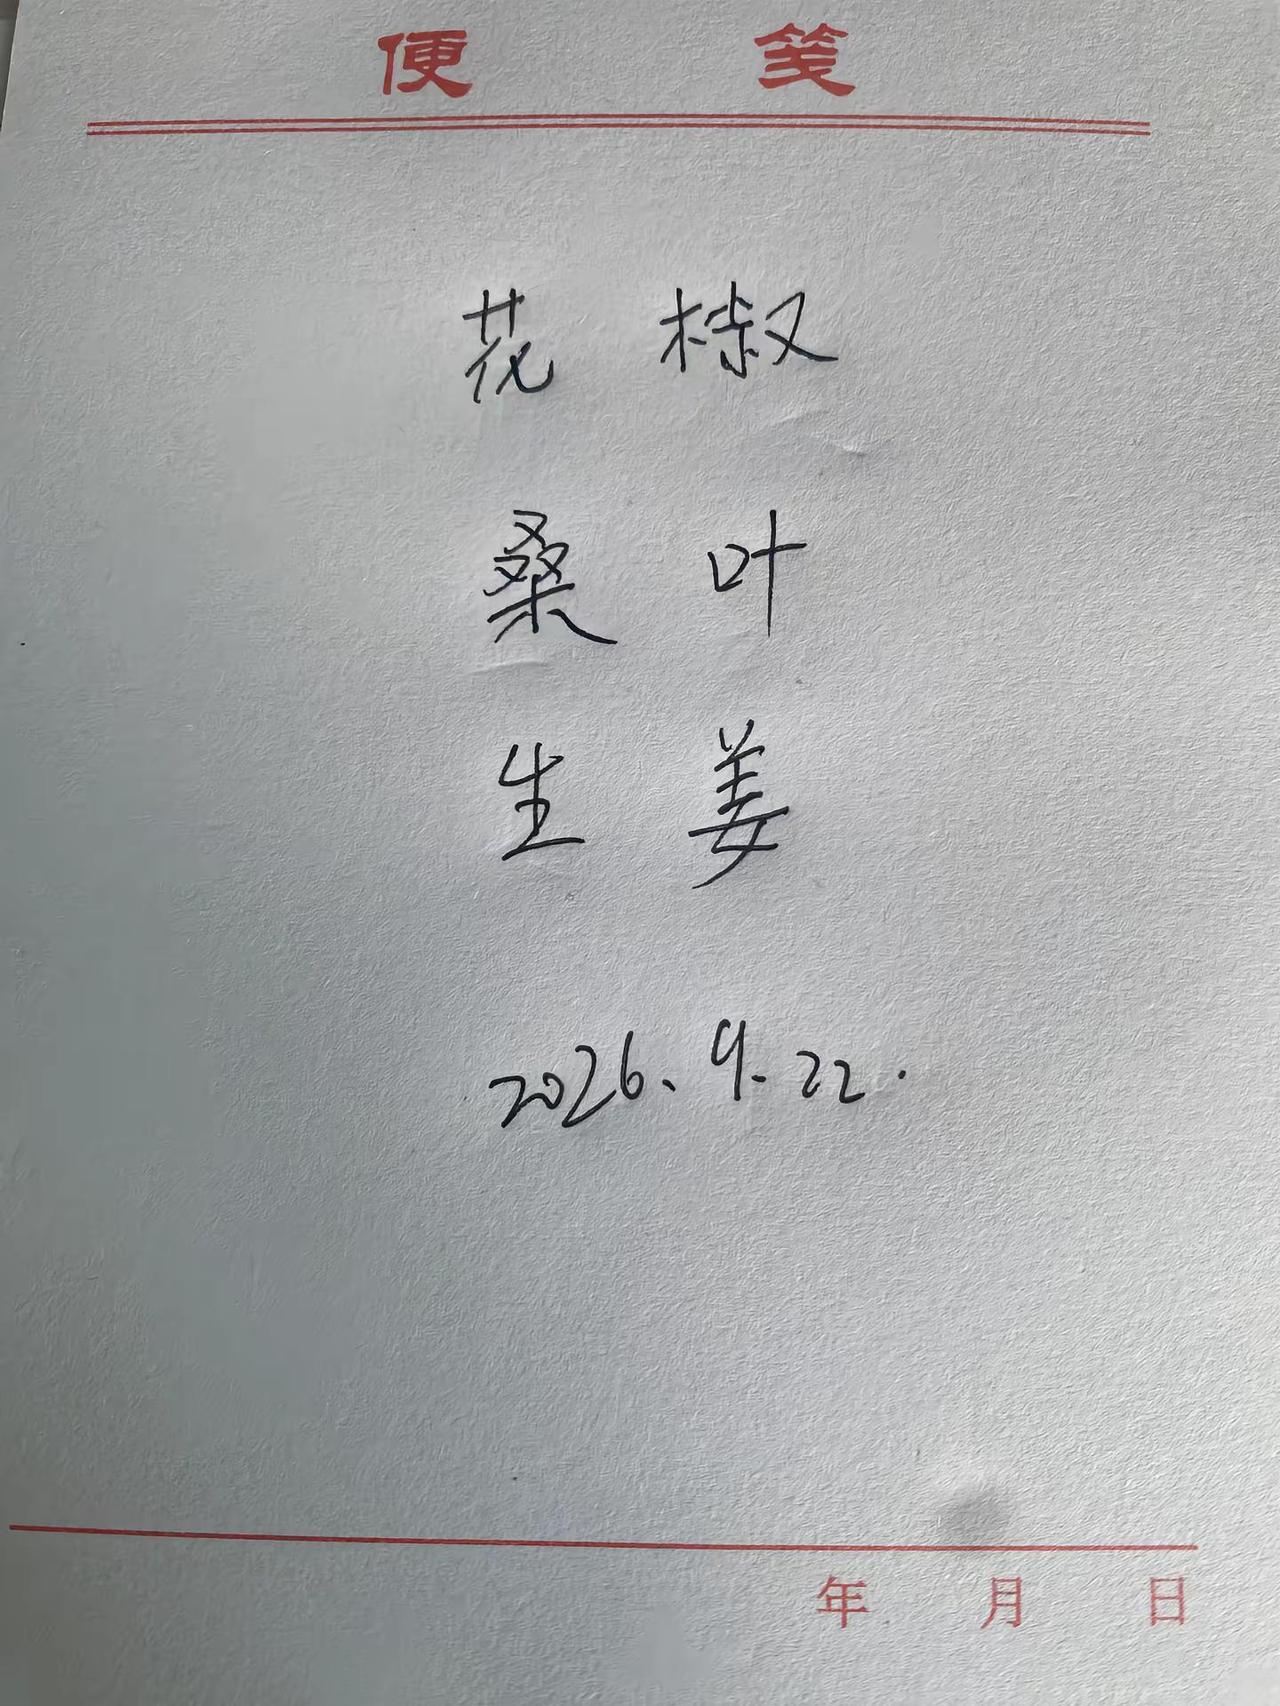 便 笺
花 椒
桑 叶
生 姜
2026.9.22.
年 月 日